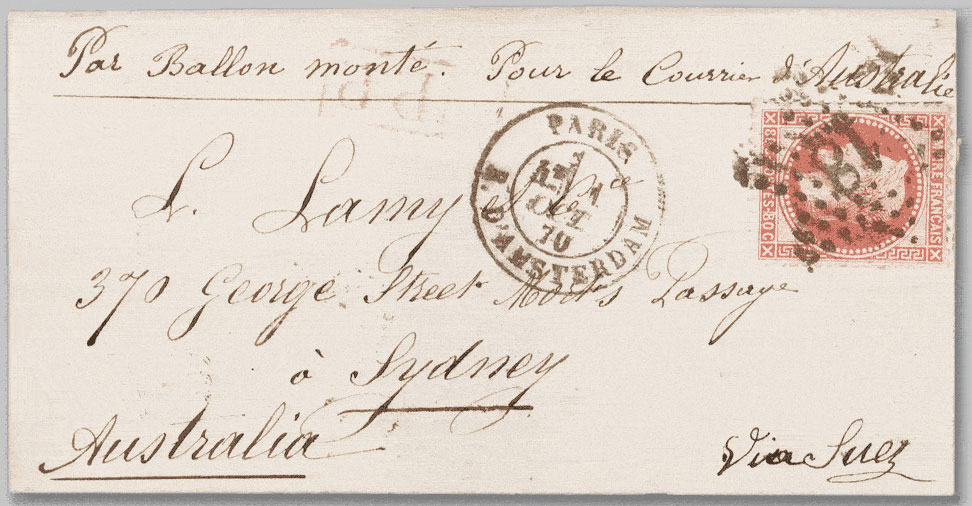 Par Ballon monté. Pour le Courrier d'Australie
PP
PARIS
1
1
OCT.
70
R. D'AMSTERDAM
18
80 C POSTES 80 C
RE FRANCAIS
L. Lamy et Cº
370 George Street Mort's Passage
à Sydney
Australia
Via Suez